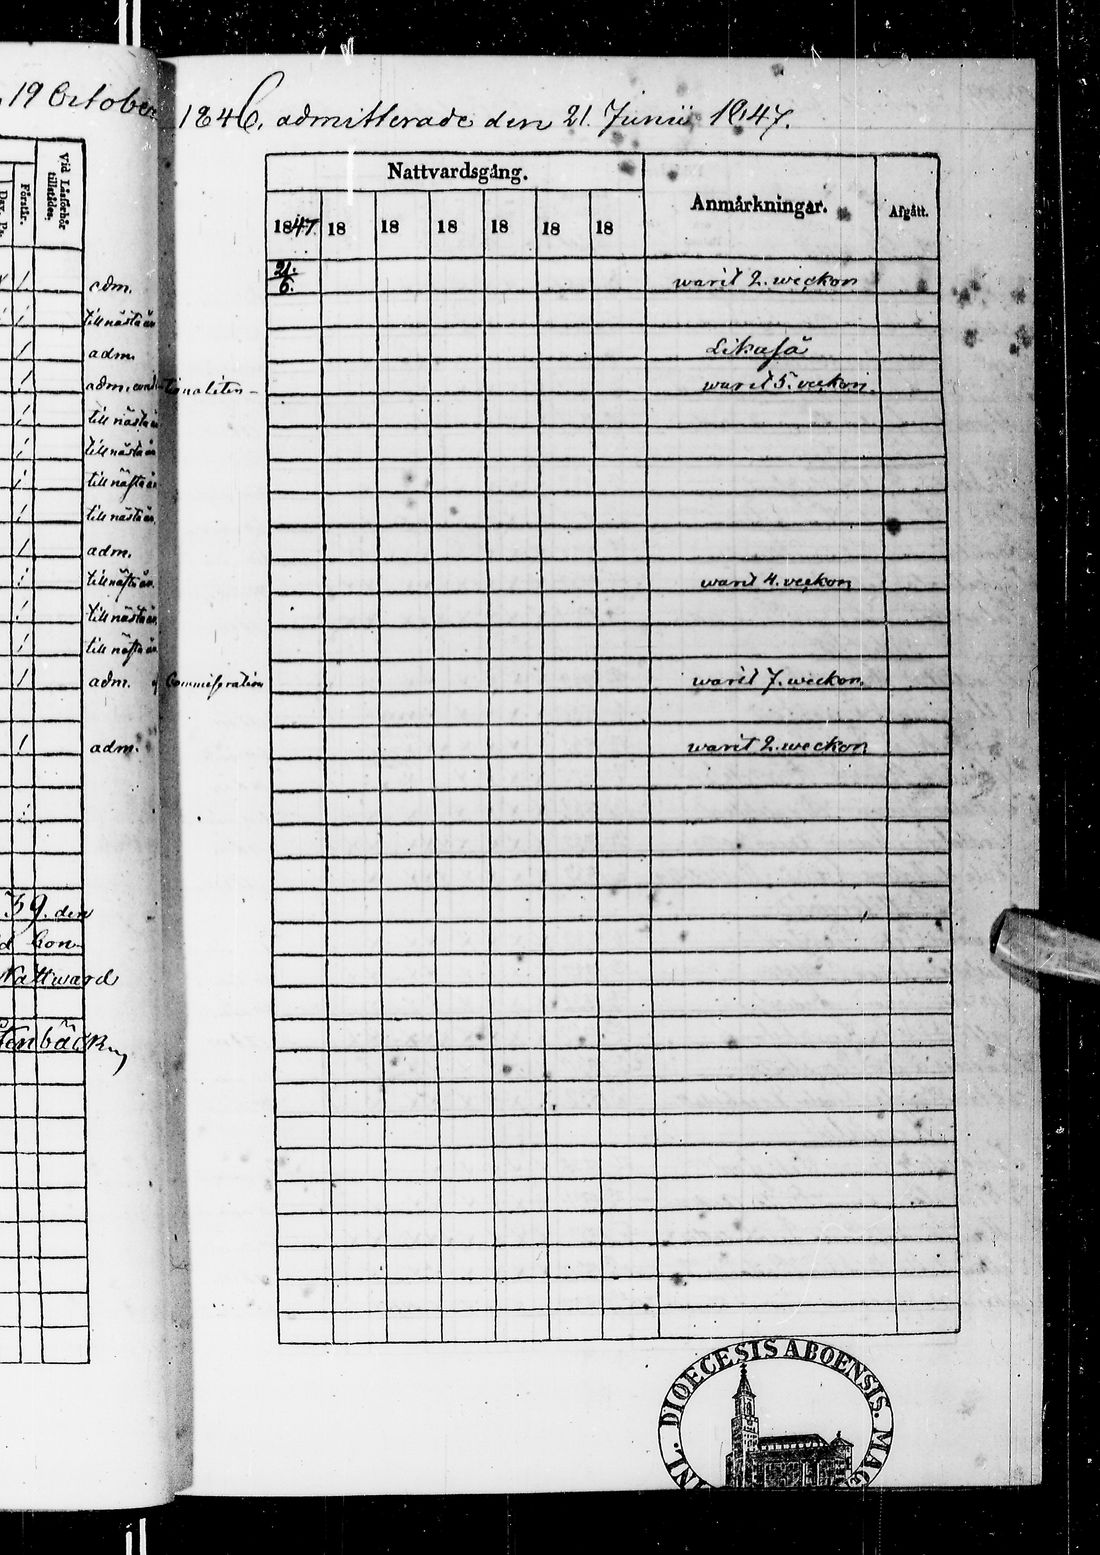 19 October 1846, admitterade den 21. Junii 1847.
Vid Läsförhör tillstädes.
Förstår.
Dav. Ps.
Nattvardsgång.
Anmärkningar.
Afgått.
1847. 18 18 18 18 18 18
adm. 21./6. warit 2. weckon
till nästa år
adm. Likaså
adm. conditionaliten – warit 5. veckon.
till nästa år
till nästa år
till nästa år
till nästa år.
adm.
till nästa år. warit 4. veckon
till nästa år.
till nästa år
adm. af Commiseration warit 7. weckon.
adm. warit 2. weckon
39. den
d Con-
Nattward
tenbäck
DIOECESIS ABOENSIS. MAG
INL.